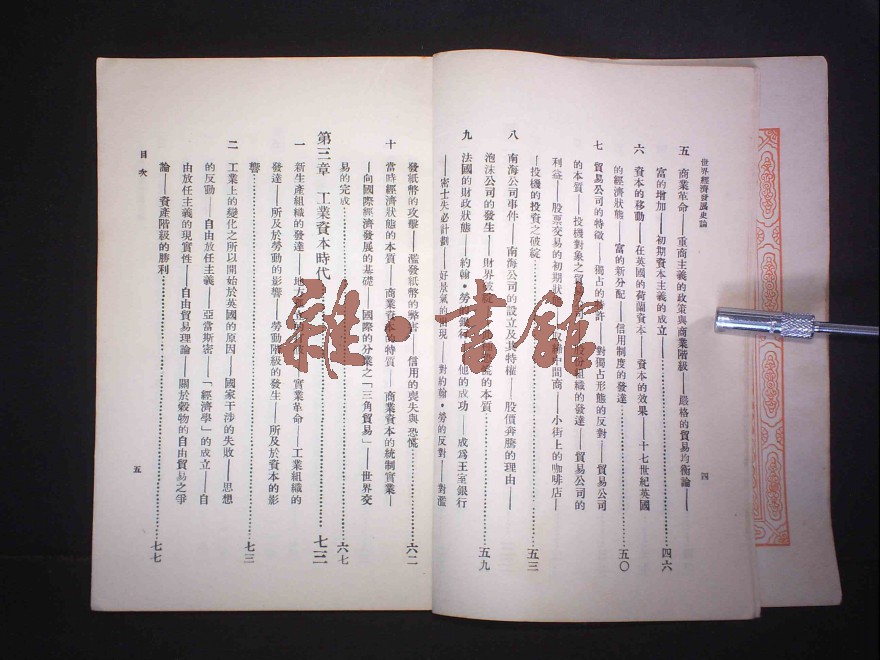 世界經濟發展史論
四
五 商業革命——重商主義的政策與商業階級——嚴格的貿易均衡論——
富的增加——初期資本主義的成立……四六
六 資本的移動——在英國的荷蘭資本——資本的效果——十七世紀英國
的經濟狀態——富的新分配——信用制度的發達……五〇
七 貿易公司的特徵——獨占的特許——對獨占形態的反對——貿易公司
的本質——投機對象之貿易——股份組織的發達——貿易公司的
利益——股票交易的初期狀——取締中間商——小街上的咖啡店——
投機的投資之破綻……五三
八 南海公司事件——南海公司的設立及其特權——股價奔騰的理由——
泡沫公司的發生——財界破綻——的本質……五九
九 法國的財政狀態——約翰·勞——銀行——他的成功——成爲王室銀行
——密士失必計劃——好景氣的出現——對約翰·勞的反對——對濫
發紙幣的攻擊——濫發紙幣的弊害——信用的喪失與恐慌……六二
十 當時經濟狀態的本質——商業資本的特質——商業資本的統制實業——
——向國際經濟發展的基礎——國際的分業之「三角貿易」——世界交
易的完成……六七
第三章 工業資本時代……七三
一 新生產組織的發達——地方——實業革命——工業組織的
發達——所及於勞動的影響——勞動階級的發生——所及於資本的影
響……七三
二 工業上的變化之所以開始於英國的原因——國家干涉的失敗——思想
的反動——自由放任主義——亞當斯密——「經濟學」的成立——自
由放任主義的現實性——自由貿易理論——關於穀物的自由貿易之爭
論——資產階級的勝利……七七
目次
五
雜·書館